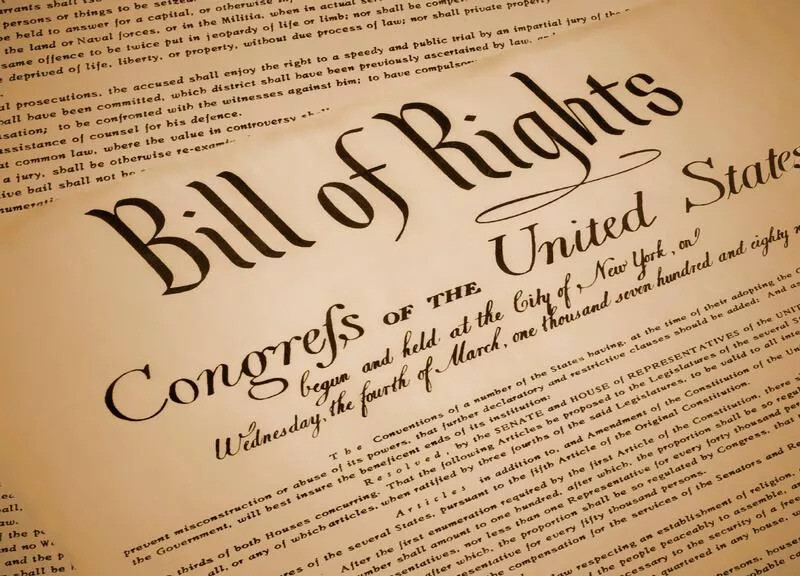 arrants shall
persons or things to be seized.
be held to answer for a capital, or otherwise
the land or Naval forces, or in the Militia, when in actual
same offence to be twice put in jeopardy of life or limb; nor shall be
deprived of life, liberty, or property, without due process of law; nor shall private property
al prosecutions, the accused shall enjoy the right to a speedy and public trial by an impartial jury of the
all have been committed, which district shall have been previously ascertained by law,
sation; to be confronted with the witnesses against him; to have compulsor
assistance of counsel for his defence.
at common law, where the value in controversy shall
a jury, shall be otherwise re-exam
ive bail shall not be
numerati
Bill of Rights
Congreſs OF THE United States
begun and held at the City of New York, on
Wednesday, the fourth of March, one thousand seven hundred and eighty n
The Conventions of a number of the States having, at the time of their adopting the C
prevent misconstruction or abuse of its powers, that further declaratory and restrictive clauses should be added: And as
the Government, will best insure the beneficent ends of its institution;
Resolved, by the SENATE and HOUSE of REPRESENTATIVES of the UNIT
thirds of both Houses concurring. That the following Articles be proposed to the Legislatures of the several S
all, or any of which articles, when ratified by three fourths of the said Legislatures, to be valid to all inte
Articles in addition to, and Amendment of the Constitution of the Un
res of the several States, pursuant to the fifth Article of the Original Constitution.
After the first enumeration required by the first Article of the Constitution, there s
number shall amount to one hundred, after which, the proportion shall be so regu
sentatives, nor less than one Representative for every forty thousand per
after which, the proportion shall be so regulated by Congress, that
sentative for every fifty thousand persons.
the compensation for the services of the Senators and Re
law respecting an establishment of religion,
the people peaceably to assemble, and
necessary to the security of a free
quartered in any house, w
persons, hous